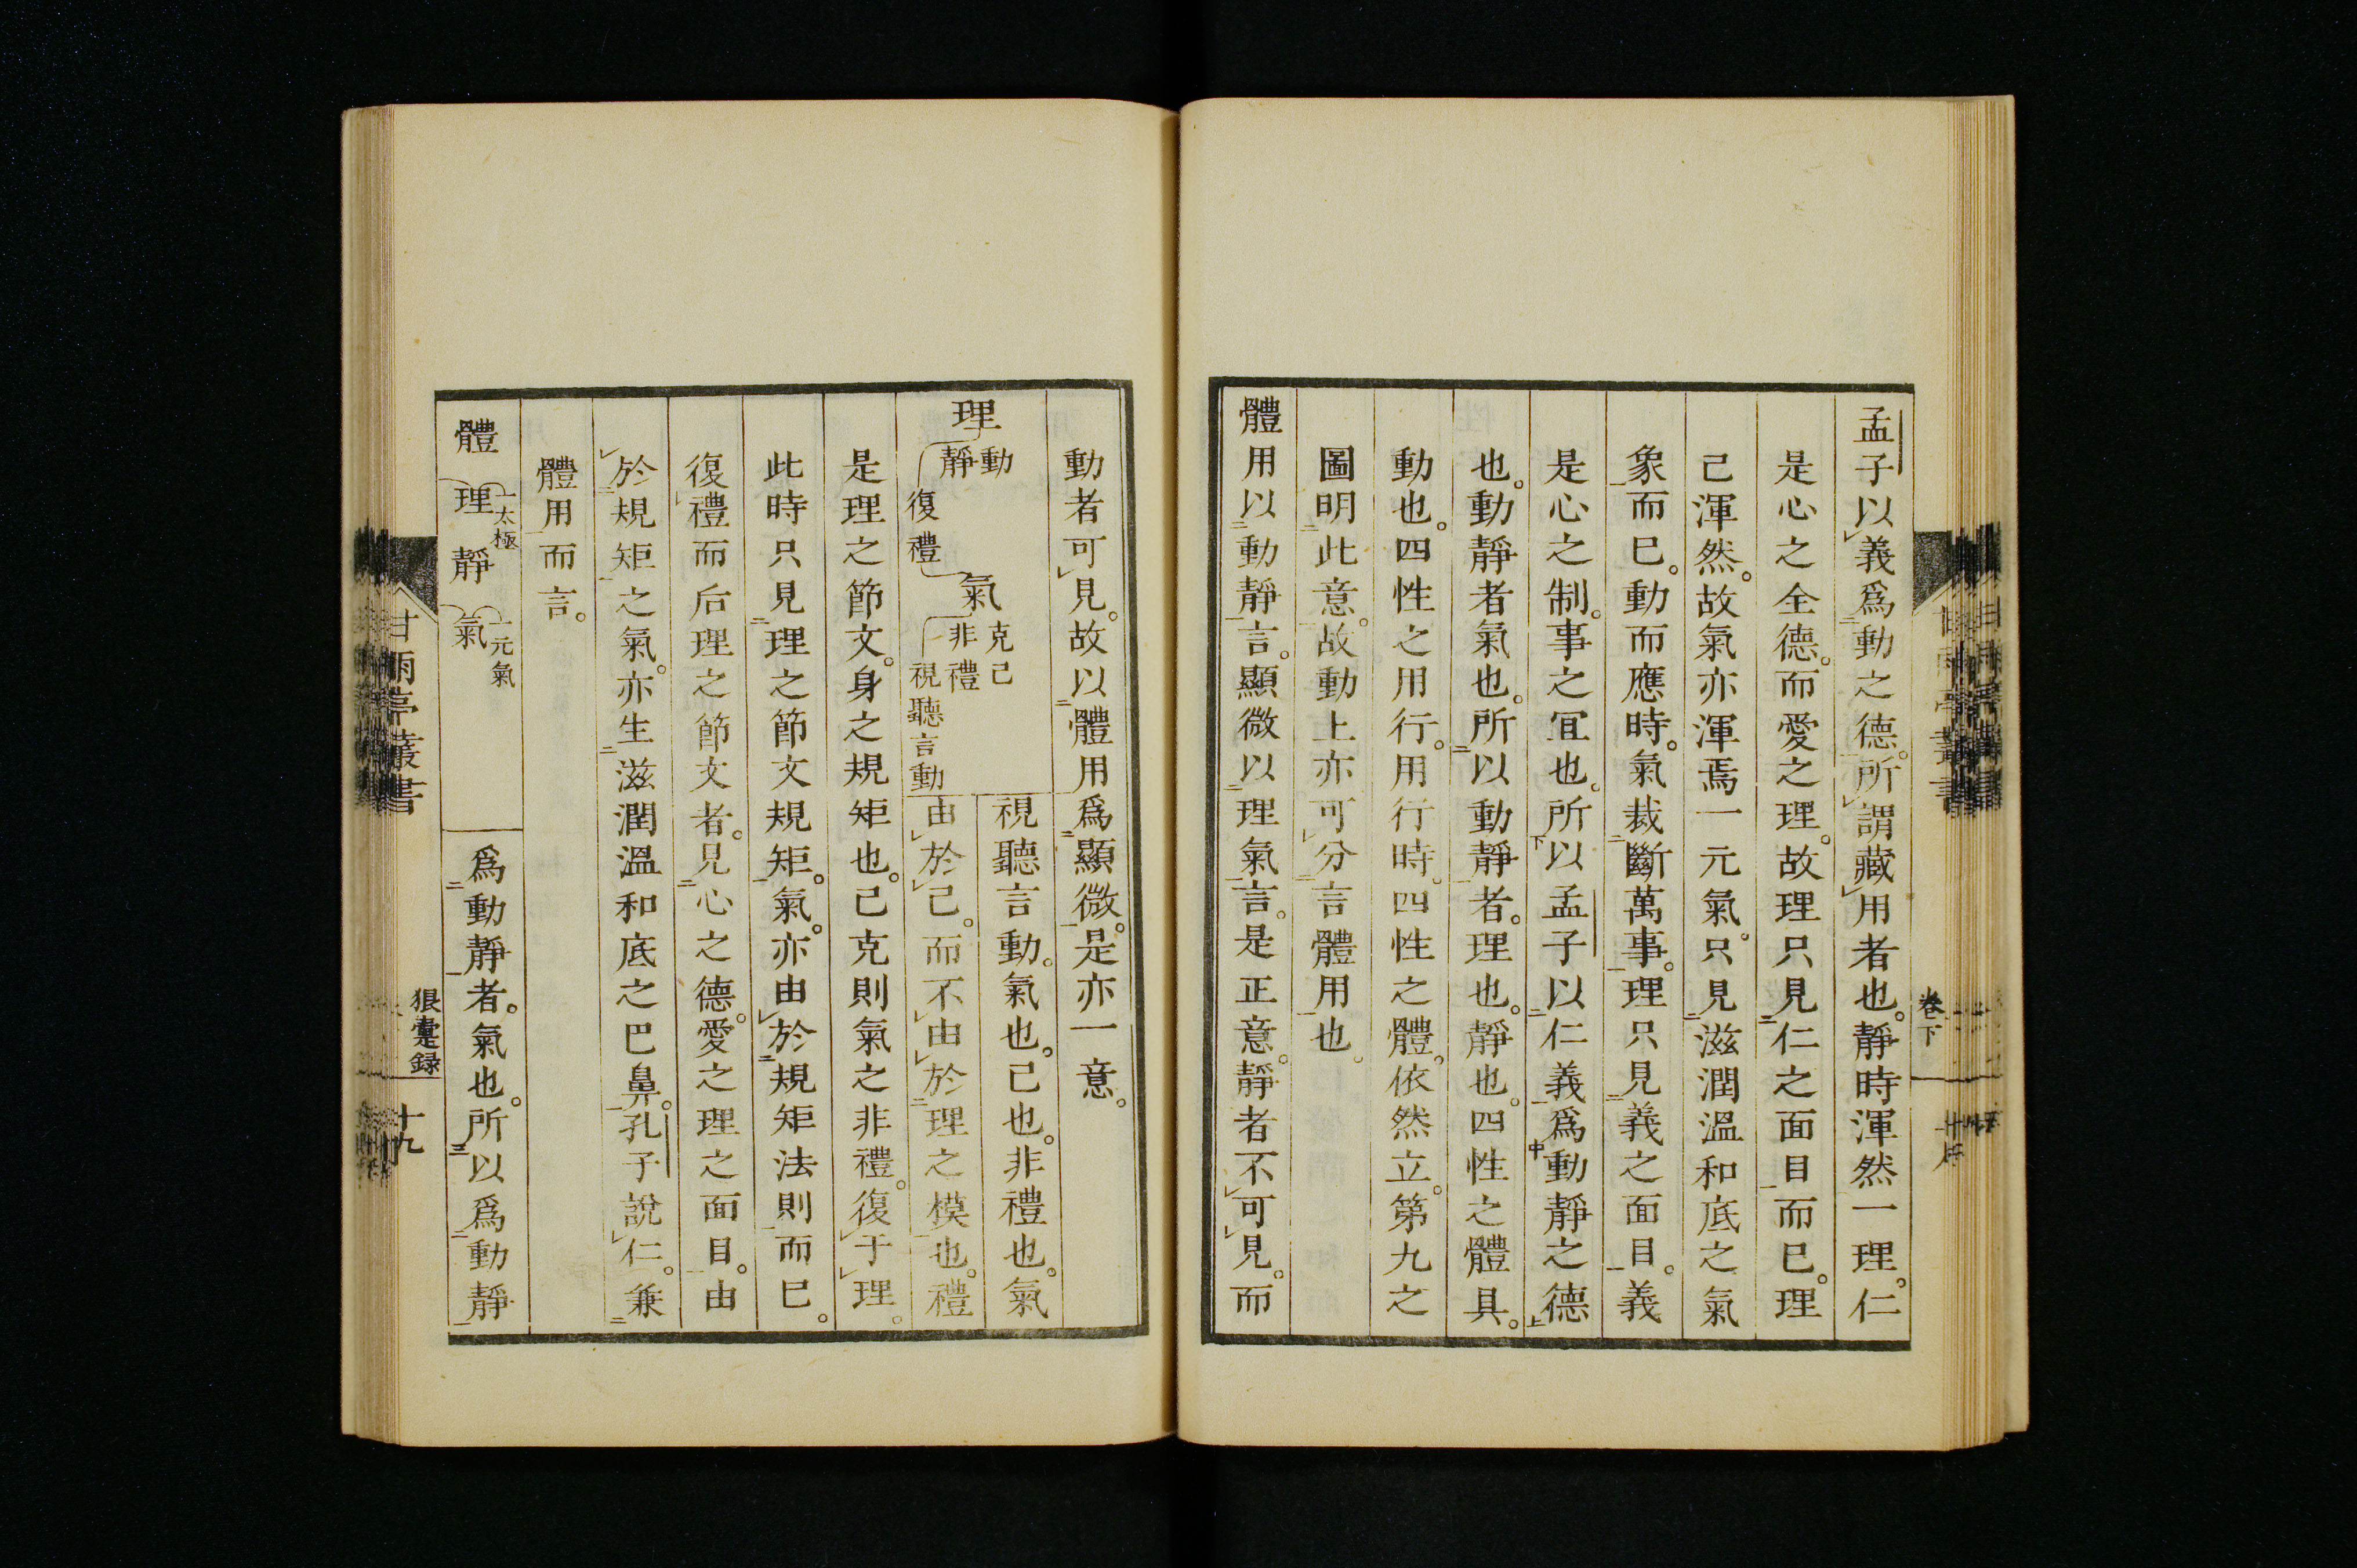 孟子以義爲動之德。所謂藏用者也。靜時渾然一理。仁
是心之全德。而愛之理。故理只見仁之面目而已。理
己渾然。故氣亦渾焉一元氣。只見滋潤溫和底之氣
象而已。動而應時。氣裁斷萬事。理只見義之面目。義
是心之制。事之宜也。所以孟子以仁義爲動靜之德
也。動靜者氣也。所以動靜者。理也。靜也。四性之體具。
動也。四性之用行。用行時。四性之體。依然立。第九之
圖明此意。故動上亦可分言體用也。
體用以動靜言。顯微以理氣言。是正意。靜者不可見。而
卷下
動者可見。故以體用爲顯微。是亦一意。
理
動
靜
復禮
氣
克己
非禮
視聽言動
視聽言動。氣也。己也。非禮也。氣
由於己。而不由於理之模也。禮
是理之節文。身之規矩也。己克則氣之非禮。復于理。
此時只見理之節文規矩。氣。亦由於規矩法則而已。
復禮而后理之節文者。見心之德。愛之理之面目。由
於規矩之氣。亦生滋潤溫和底之巴鼻。孔子說仁。兼
體用而言。
體
理
一太極
靜
氣
一元氣
爲動靜者。氣也。所以爲動靜
甘雨亭叢書
狼疐録
十九